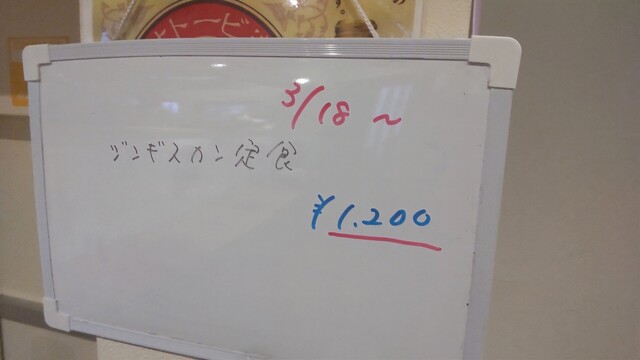 3/18 ~
ジンギスカン定食
¥1.200